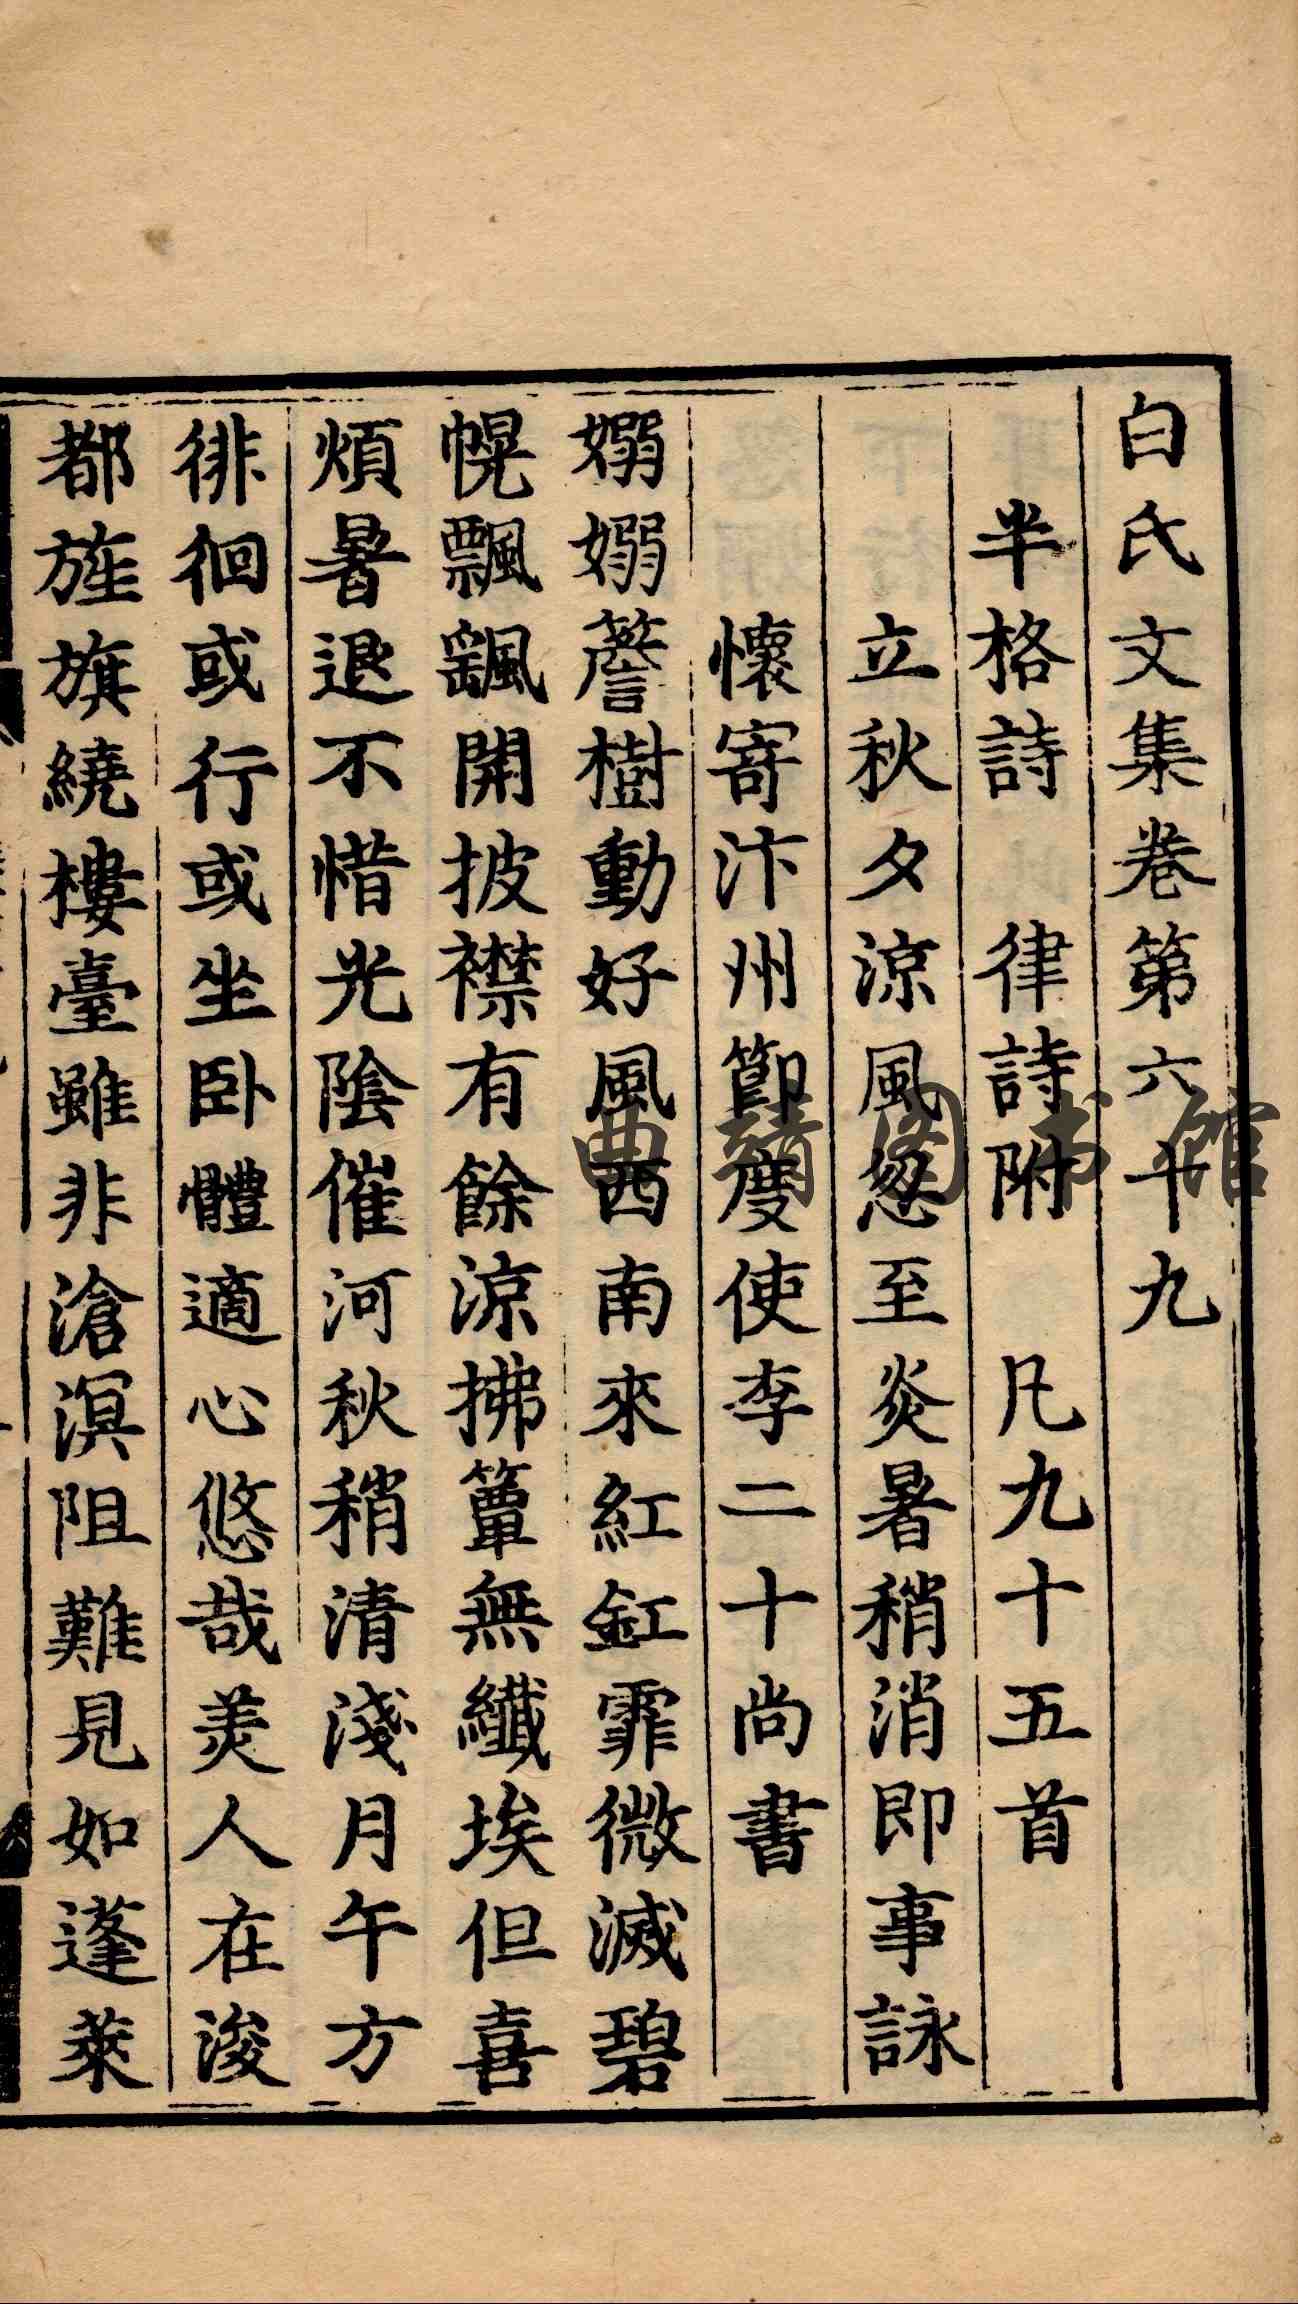 白氏文集卷第六十九
半格詩 律詩附 凡九十五首
立秋夕涼風忽至炎暑稍消即事詠
懷寄汴州節度使李二十尚書
嫋嫋簷樹動好風西南來紅缸霏微滅碧
幌飄颻開披襟有餘涼拂簟無纖埃但喜
煩暑退不惜光陰催河秋稍清淺月午方
徘徊或行或坐臥體適心悠哉美人在浚
都旌旗繞樓臺雖非滄溟阻難見如蓬萊
典籍图书馆